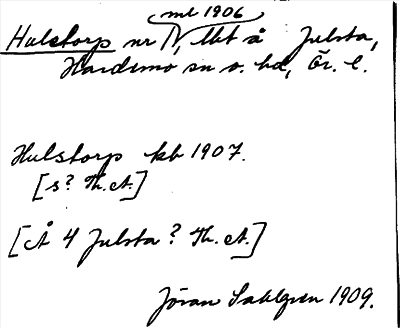 ml 1906
Hulstorp nr IV, lht å Julsta,
Hardemo sn o. hd, Ör. l.
Hulstorp kb 1907.
[s? Th. A.]
[Å 4 Julsta? Th. A.]
Jöran Sahlgren 1909.